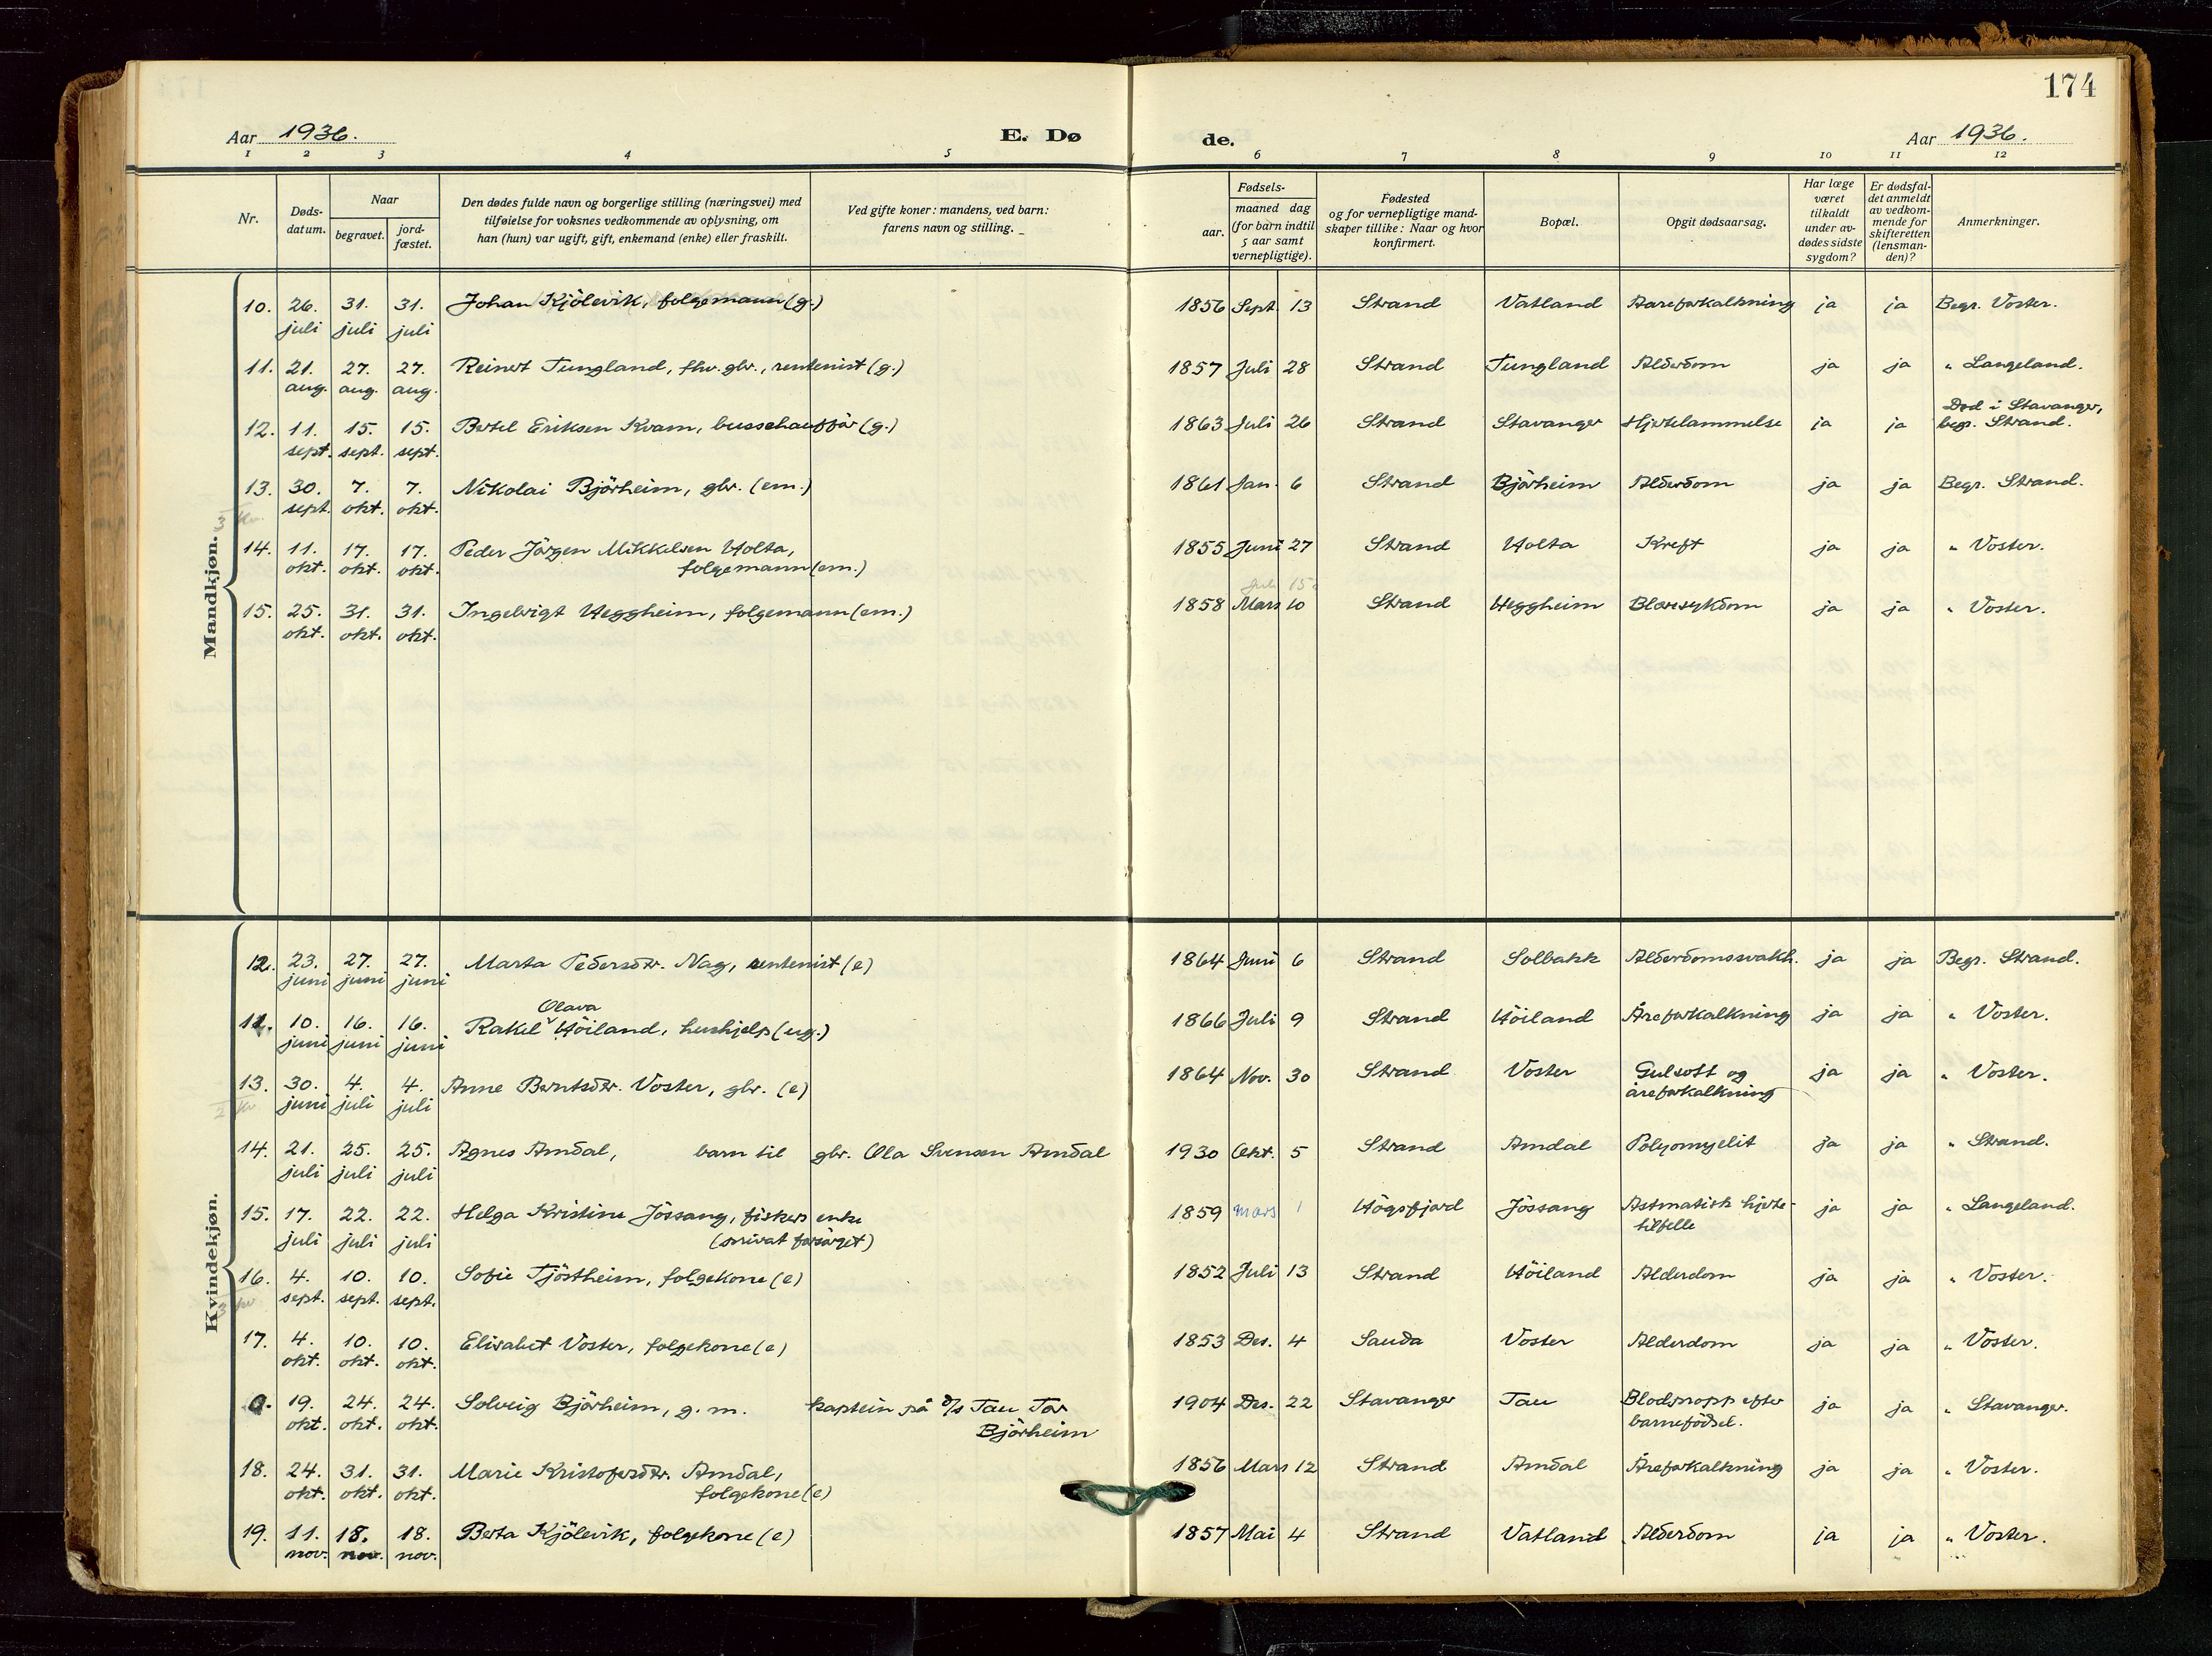 174
Aar 1936. E. Dø de. Aar 1936.
1 2 3 4 5 6 7 8 9 10 11 12
Nr. Døds-datum. Naar begravet. jord-fæstet. Den dødes fulde navn og borgerlige stilling (næringsvei) med tilføielse for voksnes vedkommende av oplysning, om han (hun) var ugift, gift, enkemand (enke) eller fraskilt. Ved gifte koner: mandens, ved barn: farens navn og stilling. Fødsels- aar. maaned dag (for barn indtil 5 aar samt vernepligtige). Fødested og for vernepligtige mand-skaper tillike: Naar og hvor konfirmert. Bopæl. Opgit dødsaarsag. Har læge været tilkaldt under av-dødes sidste sygdom? Er dødsfal-det anmeldt av vedkom-mende for skifteretten (lensman-den)? Anmerkninger.
Mandkjøn.
10. 26. juli 31. juli 31. juli Johan Kjölevik, folgemann (g.) 1856 Sept. 13 Strand Vatland Aareforkalkning ja ja Begr. Voster.
11. 21. aug. 27. aug. 27. aug. Reinert Tungland, fhv. gbr., rentenist (g.) 1857 Juli 28 Strand Tungland Alderdom ja ja " Langeland.
12. 11. sept. 15. sept. 15. sept. Bertel Eriksen Kvam, busschaufför (g.) 1863 Juli 26 Strand Stavanger Hjertelammelse ja ja Död i Stavanger, begr. Strand.
13. 30. sept. 7. okt. 7. okt. Nikolai Björheim, gbr. (em.) 1861 Jan. 6 Strand Björheim Alderdom ja ja Begr. Strand.
3 kv.
14. 11. okt. 17. okt. 17. okt. Peder Jörgen Mikkelsen Holta, folgemann (em.) 1855 Juni 27 Strand Holta Kreft ja ja " Voster.
Juli 15
15. 25. okt. 31. okt. 31. okt. Ingebrigt Heggheim, folgemann (em.) 1858 Mars 10 Strand Heggheim Blæresykdom ja ja " Voster.
Kvindekjøn.
12. 23. juni 27. juni 27. juni Marta Pedersdtr. Nag, rentenist (e) 1864 Juni 6 Strand Solbakk Alderdomssvakh. ja ja Begr. Strand.
11. 10. juni 16. juni 16. juni Rakel Olava Höiland, hushjelp (ug.) 1866 Juli 9 Strand Höiland Åreforkalkning ja ja " Voster.
13. 30. juni 4. juli 4. juli Anne Berntsdtr. Voster, gbr. (e) 1864 Nov. 30 Strand Voster Gulsott og åreforkalkning ja ja " Voster.
2 kv
14. 21. juli 25. juli 25. juli Agnes Amdal, barn til gbr. Ola Svensen Amdal 1930 Okt. 5 Strand Amdal Polyomyelit ja ja " Strand.
15. 17. juli 22. juli 22. juli Helga Kristine Jössang, fiskers enke (privat forsörget) 1859 mars 1 Högsfjord Jössang Astmatisk hjerte-tilfelle ja ja " Langeland.
16. 4. sept. 10. sept. 10. sept. Sofie Tjöstheim, folgekone (e) 1852 Juli 13 Strand Höiland Alderdom ja ja " Voster.
3 kv
17. 4. okt. 10. okt. 10. okt. Elisabet Voster, folgekone (e) 1853 Des. 4 Sauda Voster Alderdom ja ja " Voster.
0. 19. okt. 24. okt. 24. okt. Solveig Björheim, g. m. kaptein på d/s Tau Tor Björheim 1904 Des. 22 Stavanger Tau Blodpropp efter barnefödsel. ja ja " Stavanger.
18. 24. okt. 31. okt. 31. okt. Marie Kristofersdtr. Amdal, folgekone (e) 1856 Mars 12 Strand Amdal Åreforkalkning ja ja " Voster.
19. 11. nov. 18. nov. 18. nov. Berta Kjölevik, folgekone (e) 1857 Mai 4 Strand Vatland Alderdom ja ja " Voster.